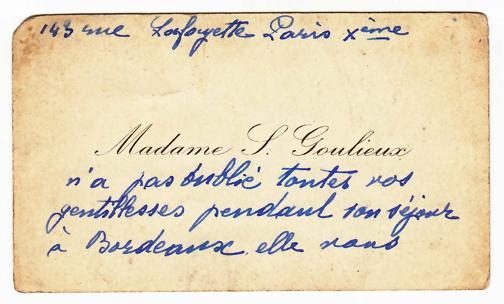 143 rue Lafayette Paris Xème
Madame S. Goulieux
n'a pas oublié toutes vos
gentillesses pendant son séjour
à Bordeaux elle vous